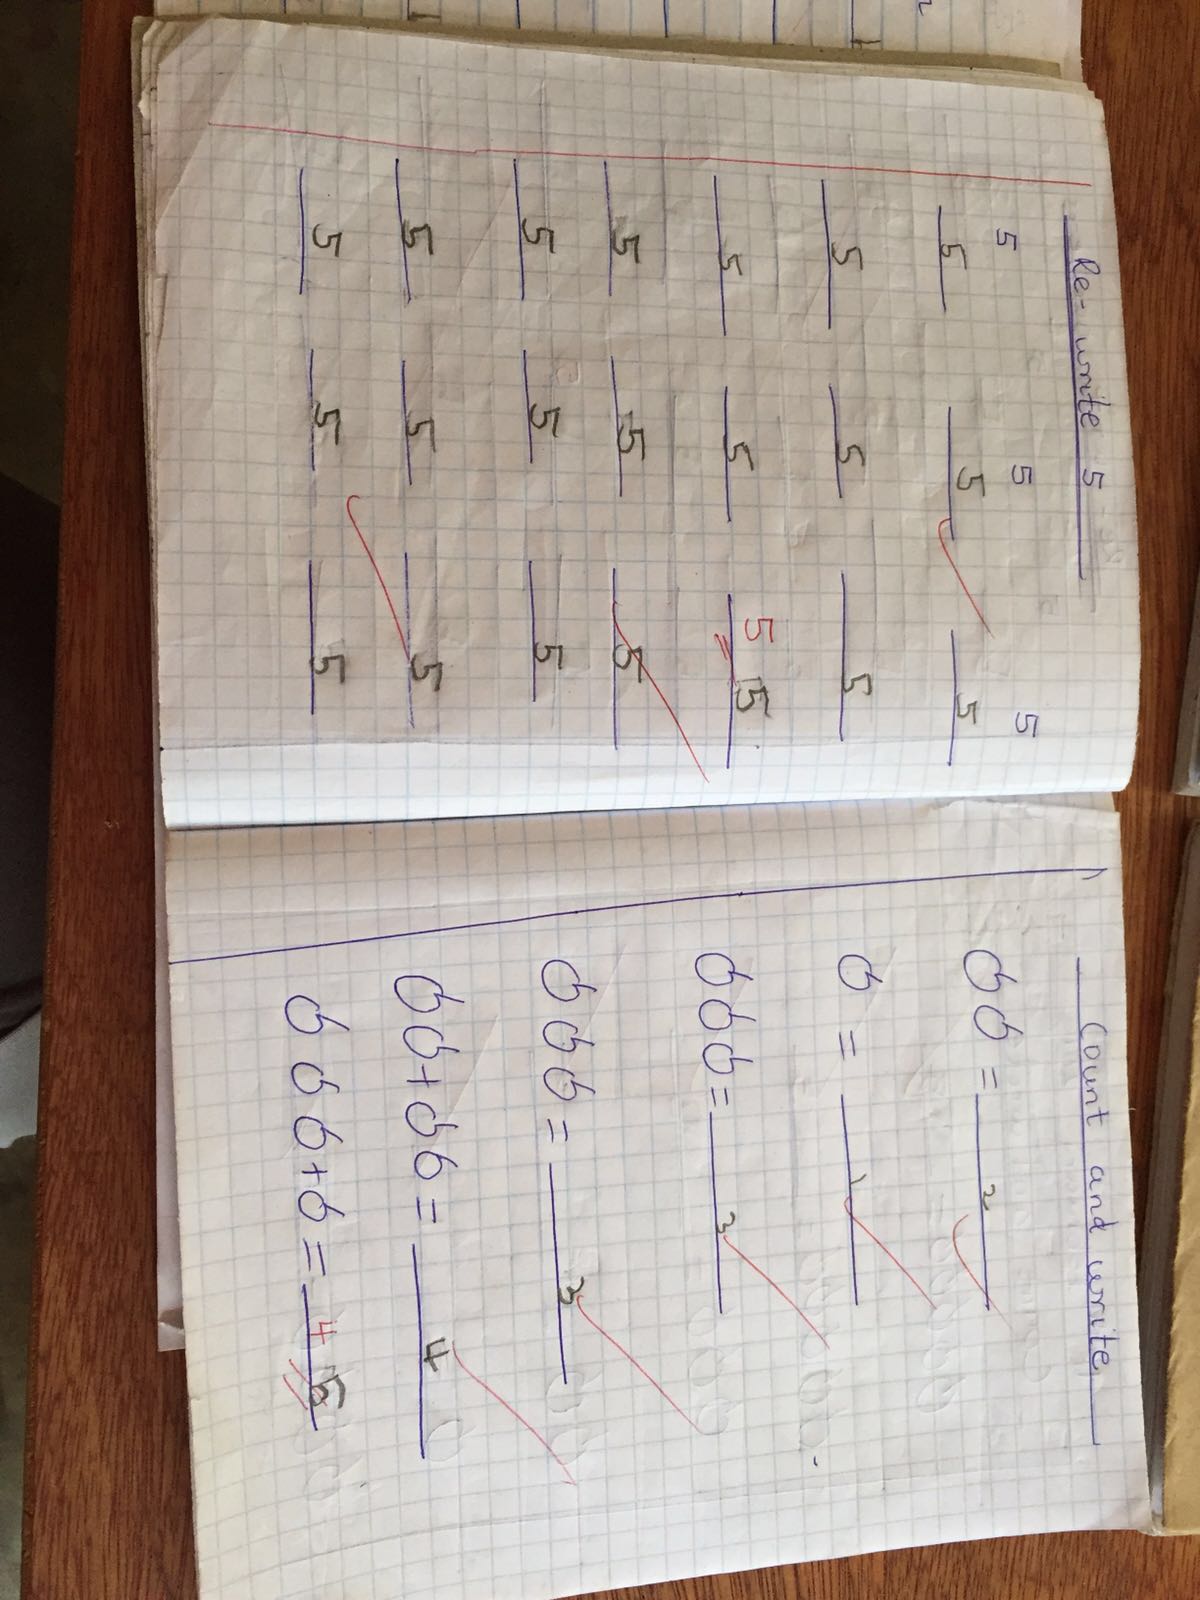 Re-write 5
5 5 5
5 5 5
5 5 5
5 5 5 5
5 5 5
5 5 5
5 5 5
5 5 5
Count and write
= 2
= 1
= 3
= 3
+ = 4
+ = 4 5